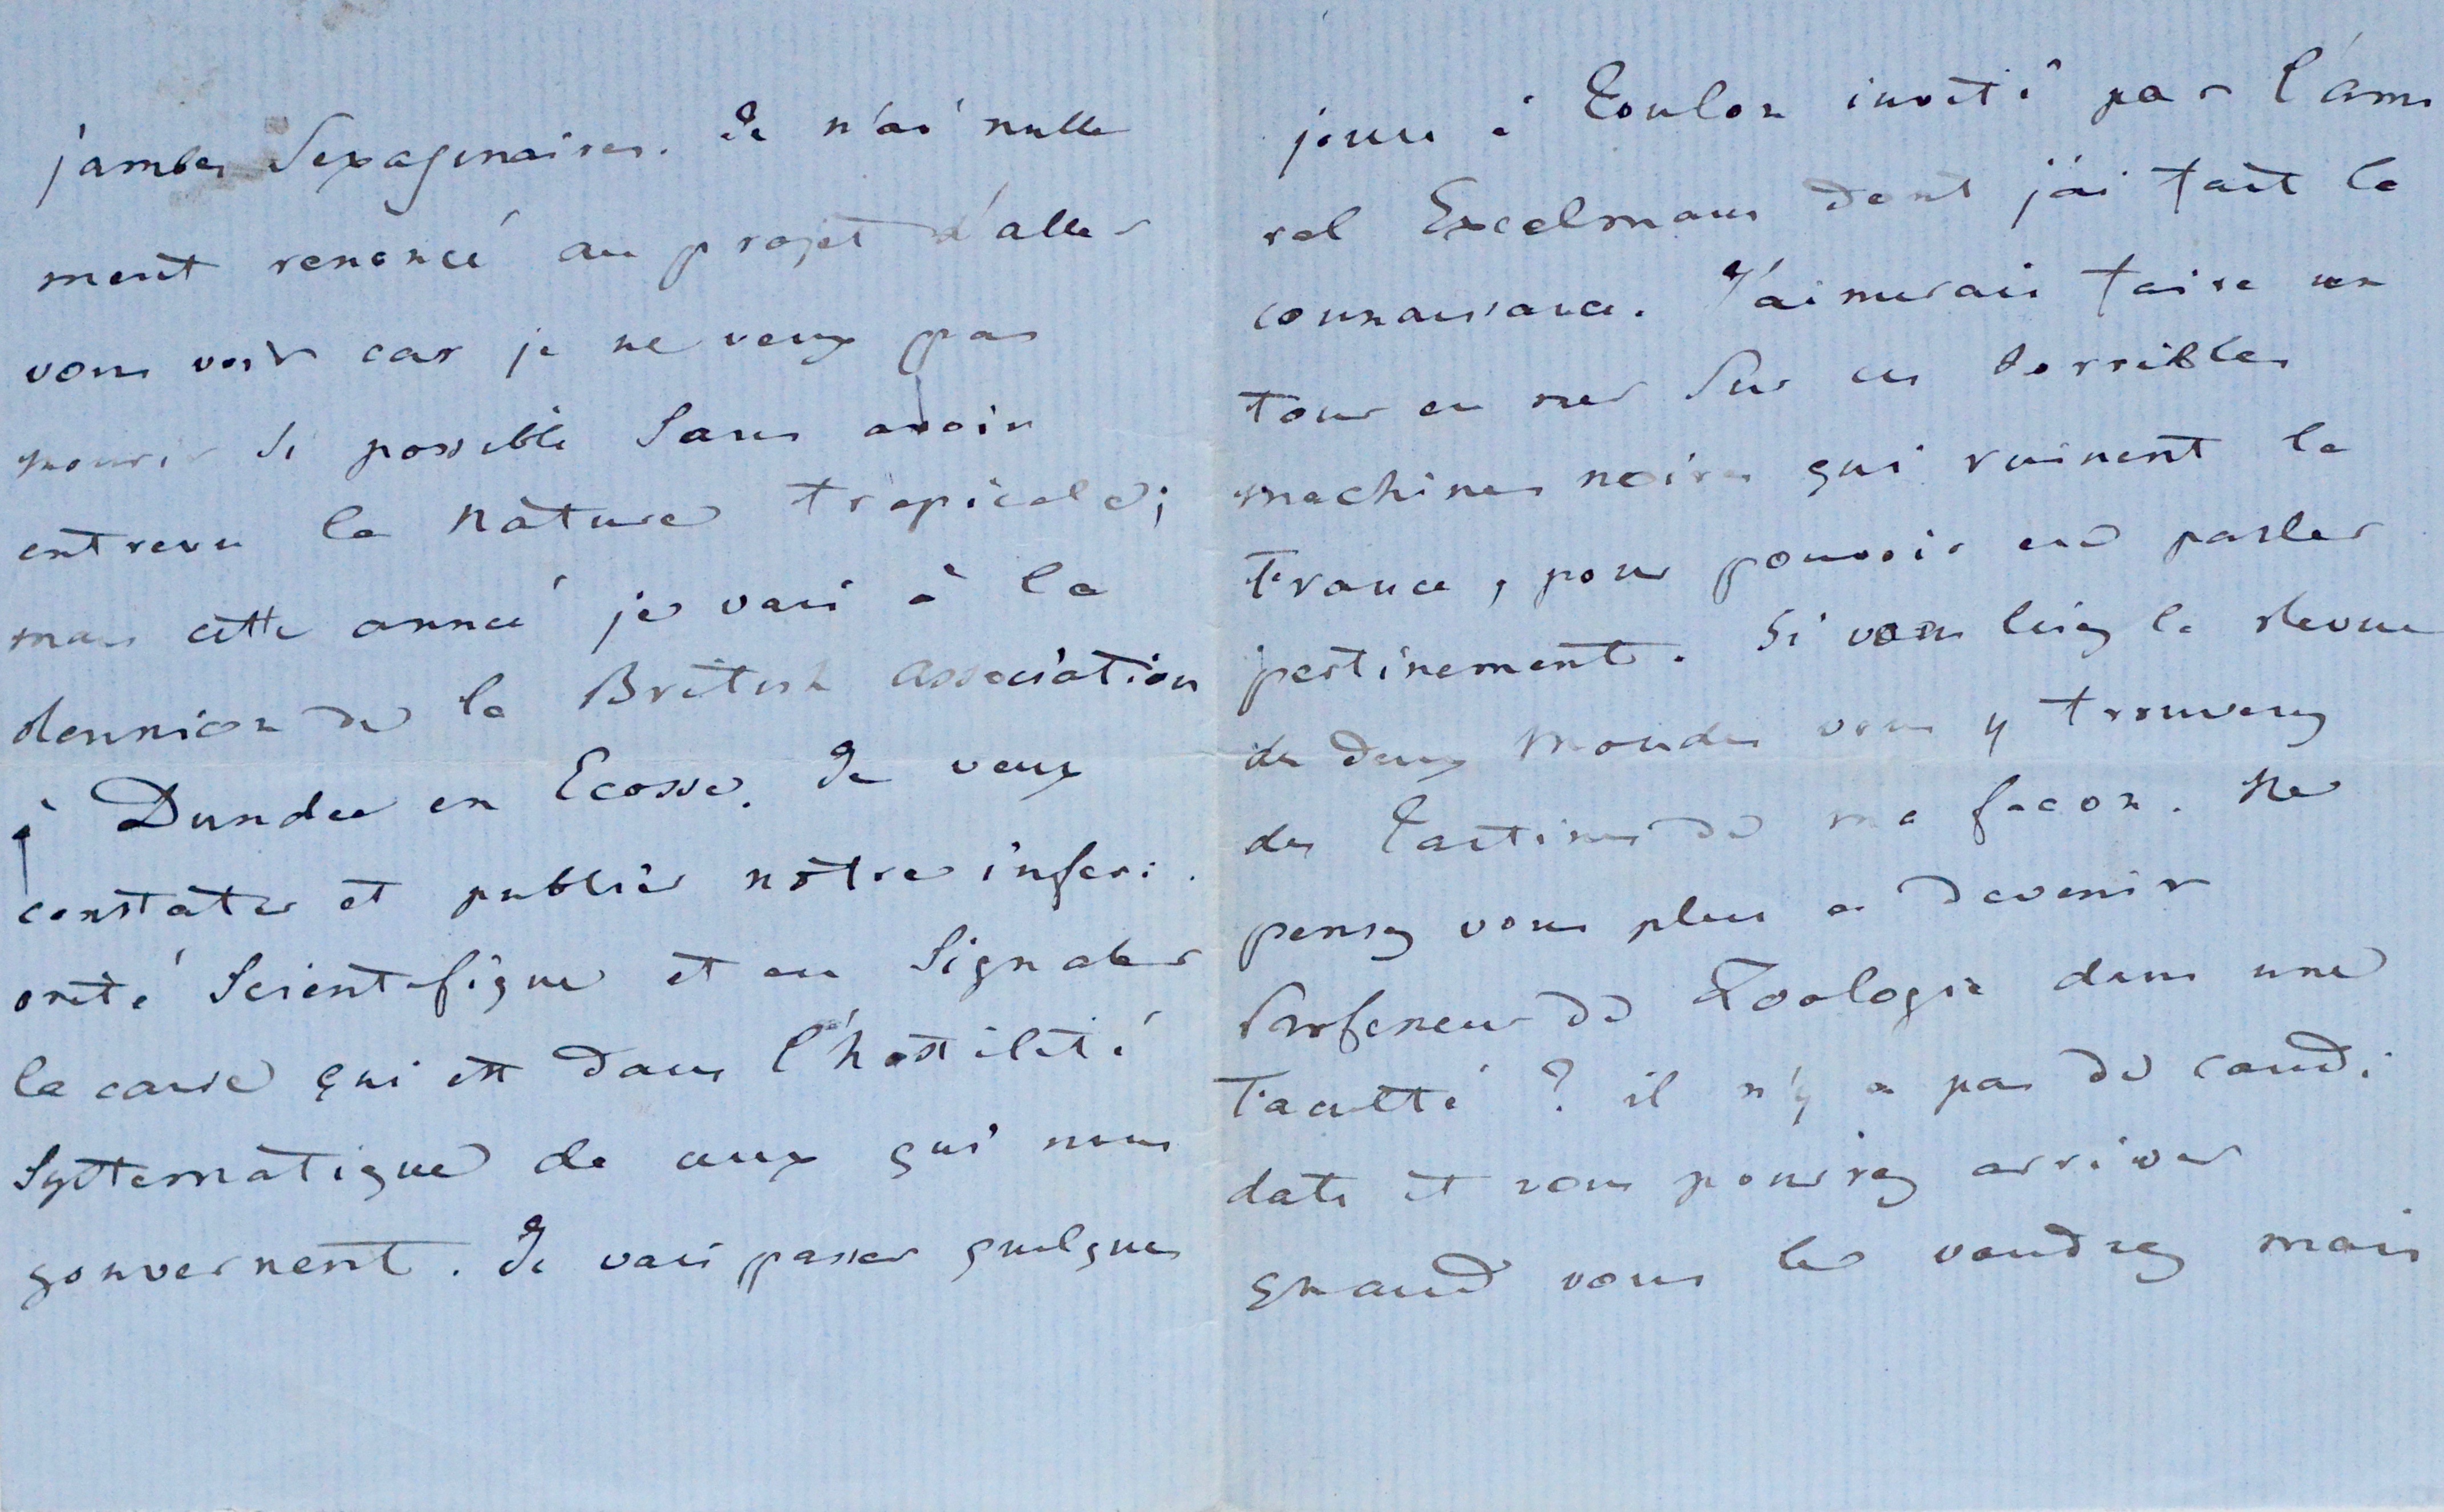 jambes Sexagenaires. Je n'ai nulle
ment renoncé au projet d'aller
vous voir car je ne veux pas
mourir si possible Sans avoir
entrevu la Nature tropicale;
mais cette année je vais à la
Reunion de la British association
à Dundee en Ecosse. Je veux
constater et publier notre inferi.
orité Scientifique et en Signaler
la cause qui est dans l'hostilité
Systematique de ceux qui nous
gouvernent. Je vais passer quelques
jours à Toulon invité par l'ami
ral Excelmans dont j'ai fait la
connaissance. J'aimerais faire un
tour en mer Sur ces terribles
machines noires qui ruinent la
France, pour pouvoir en parler
pertinement. Si vous lisez la Revue
des deux Mondes vous y trouverez
des Tartines de ma facon. Ne
pensez vous plus a devenir
Professeur de Zoologie dans une
Faculté ? il n'y a pas de candi
dats et vous pourrez arriver
quand vous le voudrez mais